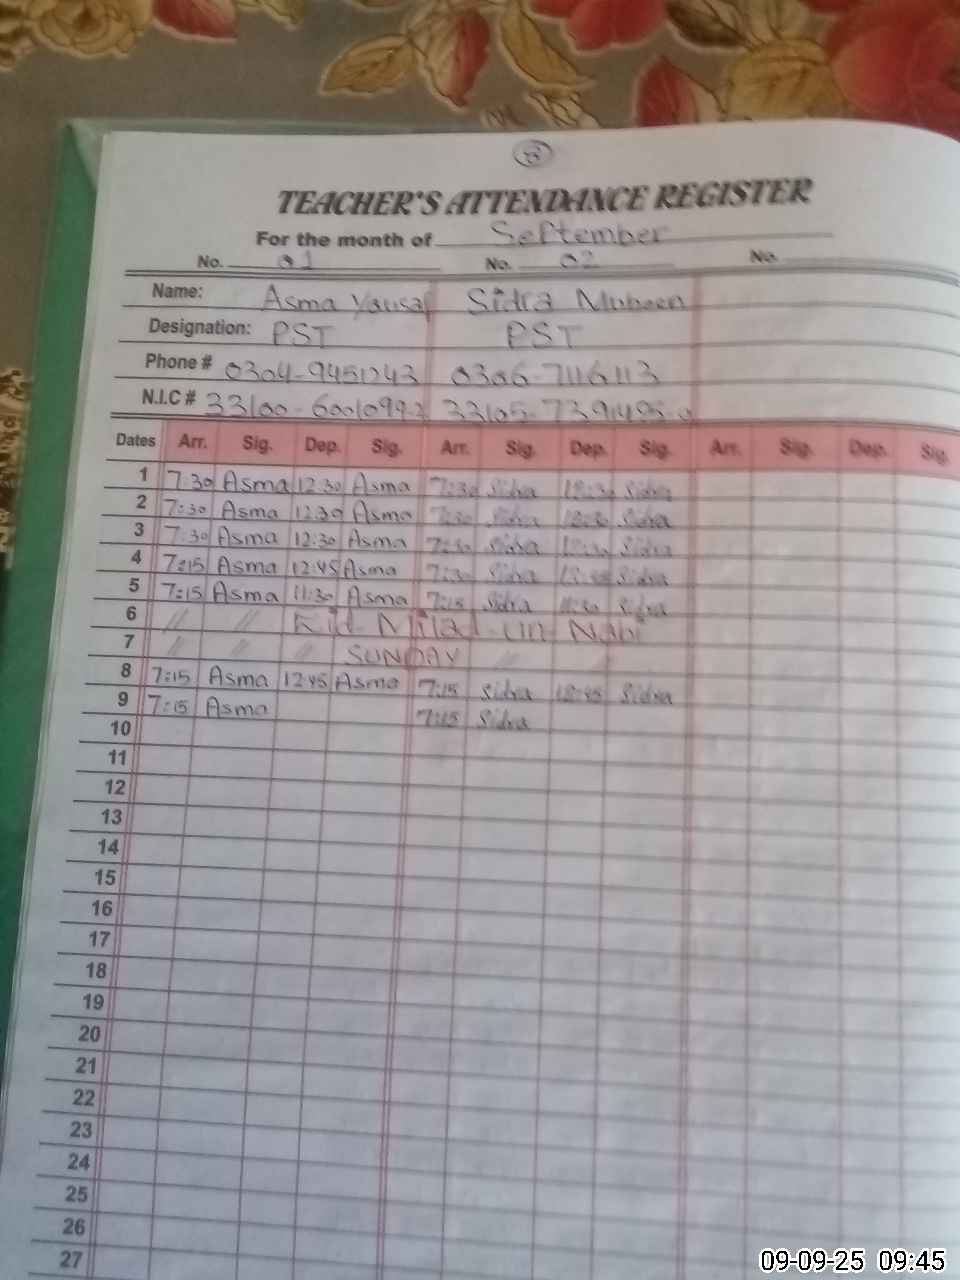 8
TEACHER'S ATTENDANCE REGISTER
For the month of September
No. 01 No. 02 No.
Name: Asma Yousaf Sidra Mubeen
Designation: PST PST
Phone # 0304-9451243 0306-7116113
N.I.C # 33100-6001099-2 33105-7391495-0
Dates Arr. Sig. Dep. Sig. Arr. Sig. Dep. Sig. Arr. Sig. Dep. Sig.
1 7:30 Asma 12:30 Asma 7:30 Sidra 12:30 Sidra
2 7:30 Asma 12:30 Asma 7:30 Sidra 12:30 Sidra
3 7:30 Asma 12:30 Asma 7:30 Sidra 12:30 Sidra
4 7:15 Asma 12:45 Asma 7:30 Sidra 12:45 Sidra
5 7:15 Asma 11:30 Asma 7:15 Sidra 11:30 Sidra
6 // // Eid Milad un Nabi
7 // // // SUNDAY //
8 7:15 Asma 12:45 Asma 7:15 Sidra 12:45 Sidra
9 7:15 Asma 7:15 Sidra
10
11
12
13
14
15
16
17
18
19
20
21
22
23
24
25
26
27
09-09-25 09:45